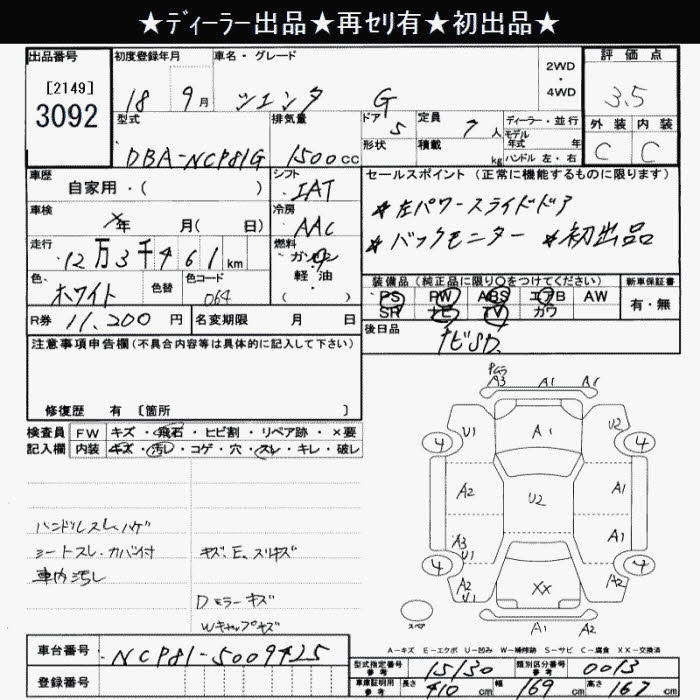 ★ディーラー出品★再セリ有★初出品★
出品番号 初度登録年月 車名・グレード 2WD・4WD 評価点
[2149] 3092 18 9月 G 3.5
型式 排気量 ドア 5 定員 7人 ディーラー・並行 外装 内装
DBA-NCP81G 1500cc 形状 積載 kg モデル年式 年 C C
ハンドル 左・右
車歴 自家用・( ) シフト IAT セールスポイント(正常に機能するものに限ります)
車検 年 月( 日) 冷房 AAC ★左パワースライドドア
走行 12万3千461km 燃料 ★バックモニター ★初出品
軽・油 ( )
色 ホワイト 色替 色コード 064 装備品(純正品に限り○をつけてください) 新車保証書
PS PW ABS エアB AW 有・無
SR ナビ TV カワ
R券 11,200円 名変期限 月 日 後日品
ナビSD.
注意事項申告欄(不具合内容等は具体的に記入して下さい)
修復歴 有 [箇所 ]
検査員 FW キズ・飛石・ヒビ割・リペア跡・×要
記入欄 内装 キズ・汚レ・コゲ・穴・スレ・キレ・破レ
A3 A1 A1
U1 A1 U2
4 4
A2 U2 A1
A3 U1 A1
4 4
A2 U1 XX A2
A1 A2
スペア
ハンドルスレ、ハゲ
シートスレ・カバー付 キズ、E、スリキズ
車内汚し
Dミラーキズ
Wキャップキズ
A-キズ E-エクボ U-凹み W-補修跡 S-サビ C-腐食 XX-交換済
車台番号 NCP81-5009425
登録番号
型式指定番号 参考 15130 類別区分番号 参考 0013
車庫証明用 参考 長さ 410cm 幅 169cm 高さ 167cm